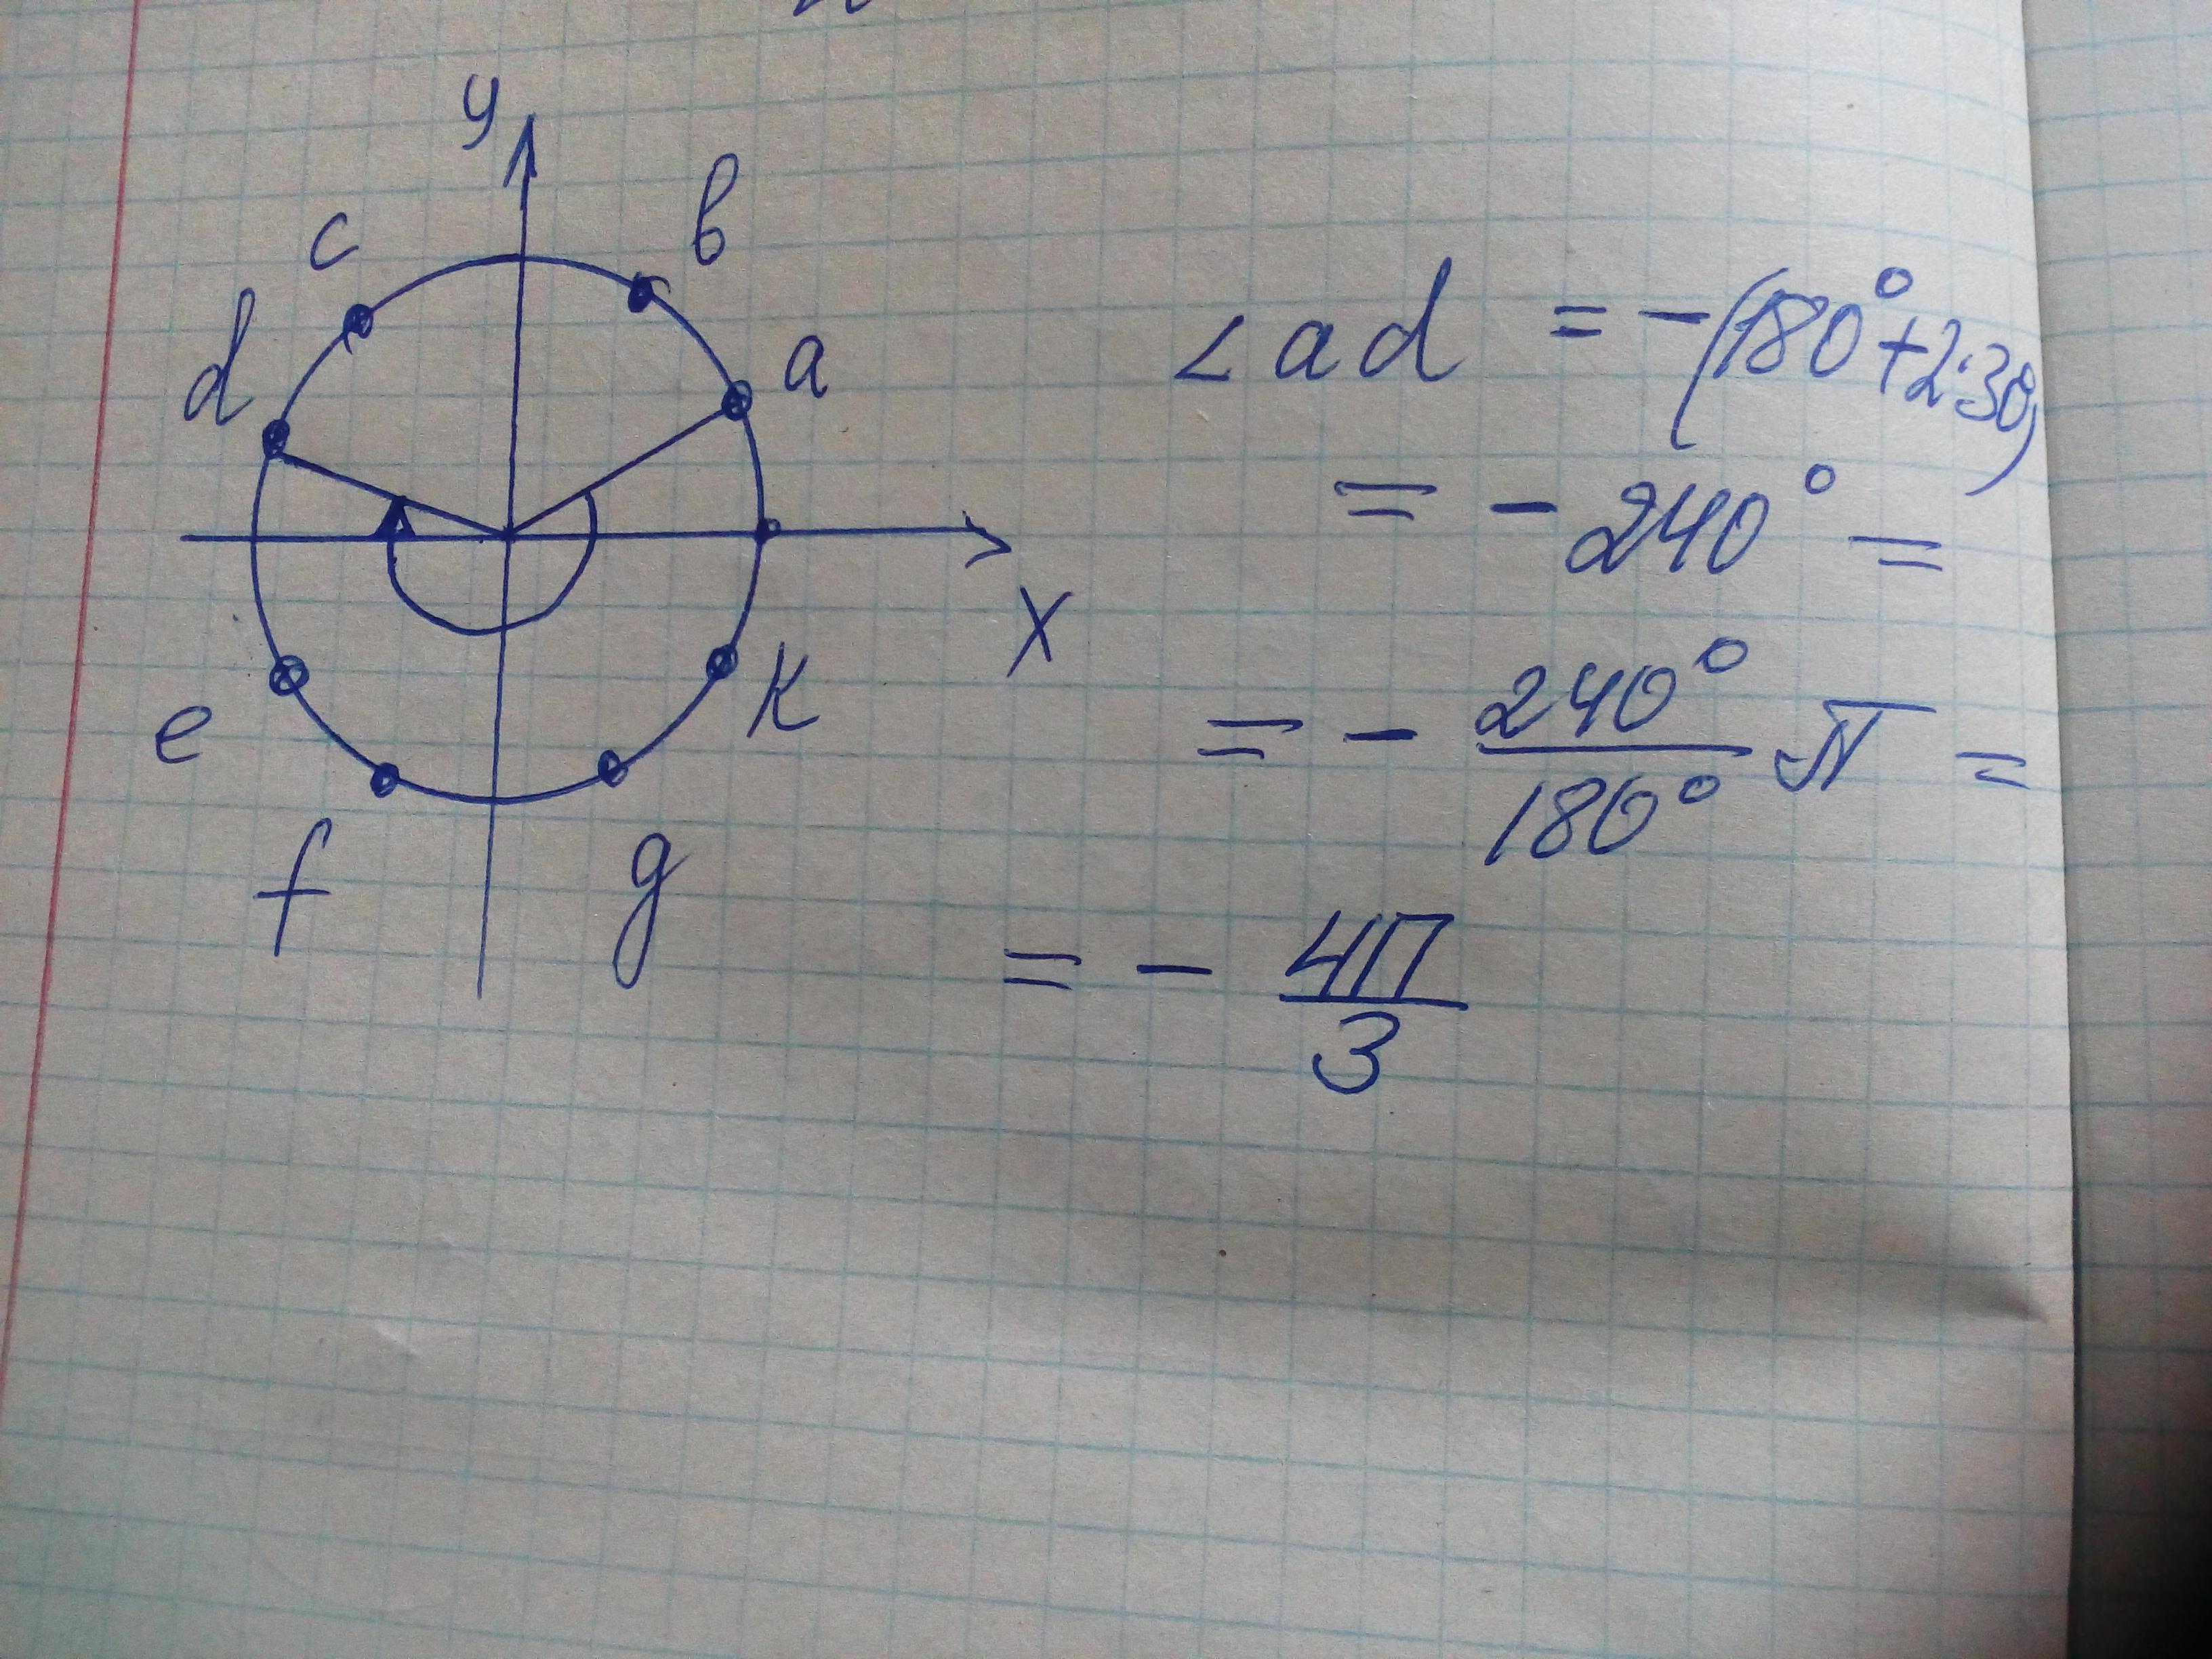 y
c
b
d
a
x
e
k
f
g
∠ad = -(180°+2·30)
= - 240° =
= - 240°/180° π =
= - 4П/3